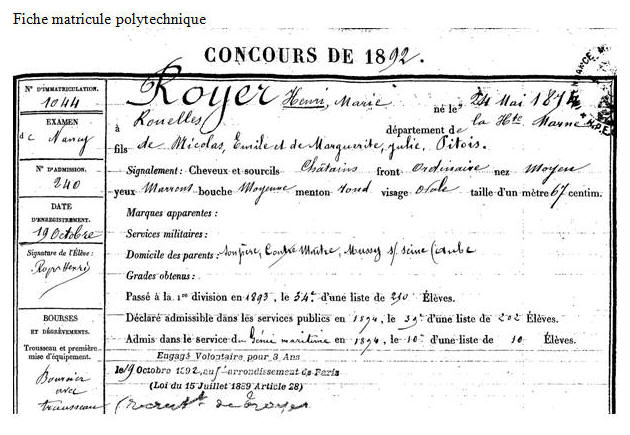 Fiche matricule polytechnique
CONCOURS DE 1892.
N° D'IMMATRICULATION.
1044
EXAMEN
de Nancy
N° D'ADMISSION.
240
DATE
D'ENREGISTREMENT.
19 Octobre
Signature de l'Élève :
Royer Henri
BOURSES
ET DÉGRÈVEMENTS.
Trousseau et première
mise d'équipement.
Boursier
avec
trousseau
Royer Henri, Marie né le 24 Mai 1874
à Rouelles département de la Hte Marne
fils de Nicolas, Emile et de Marguerite, Julie, Pitois.
Signalement : Cheveux et sourcils Châtains front Ordinaire nez Moyen
yeux Marrons bouche Moyenne menton rond visage Ovale taille d'un mètre 67 centim.
Marques apparentes :
Services militaires :
Domicile des parents : son père, Contre Maître, Mussy s/ Seine (Aube
Grades obtenus :
Passé à la 1re division en 1893, le 54e d'une liste de 210 Élèves.
Déclaré admissible dans les services publics en 1894, le 39e d'une liste de 202 Élèves.
Admis dans le service du Génie maritime en 1894, le 10e d'une liste de 10 Élèves.
Engagé Volontaire pour 3 Ans
le 19 Octobre 1892, au arrondissement de Paris
(Loi du 15 Juillet 1889 Article 28)
(recrutt de Troyes